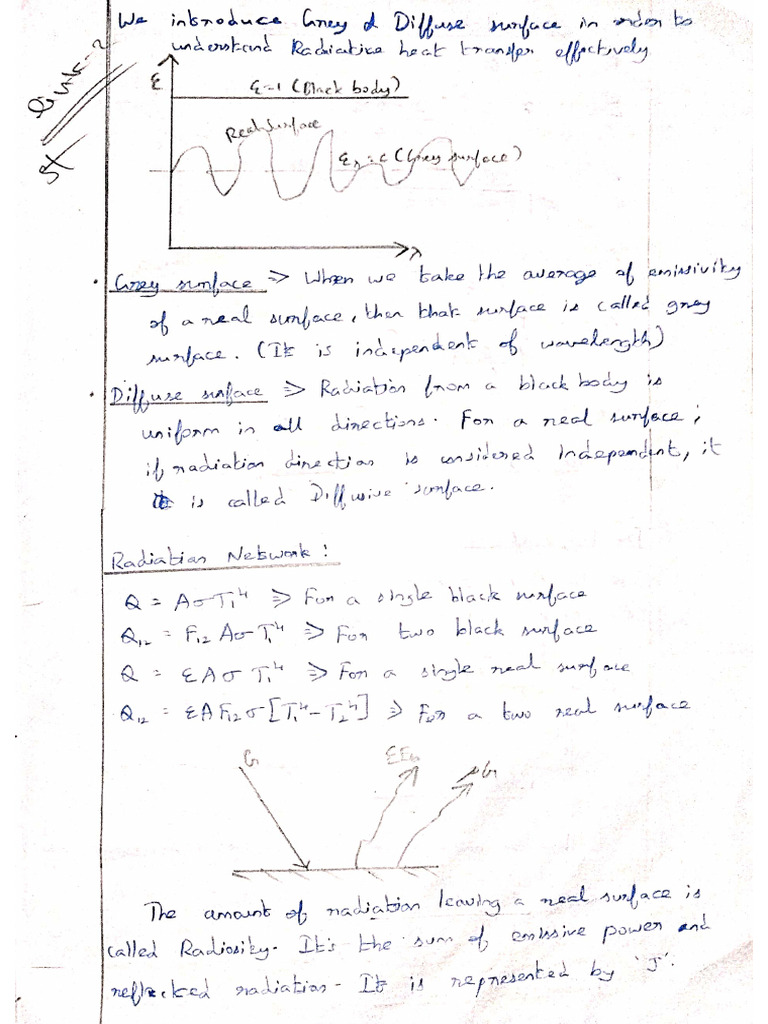 We introduce Grey & Diffuse surface in order to
understand Radiative heat transfer effectively.
link-2
ε
ε=1 (Black body)
Real surface
ελ = c (Grey surface)
λ
• Grey surface ⇒ When we take the average of emissivity
of a real surface, then that surface is called grey
surface. (It is independent of wavelength)
• Diffuse surface ⇒ Radiation from a black body is
uniform in all directions. For a real surface;
if radiation direction is considered independent, it
is called Diffusive surface.
Radiation Network:
Q = AσT₁⁴ ⇒ For a single black surface
Q₁₂ = F₁₂ AσT₁⁴ ⇒ For two black surface
Q = εAσ T₁⁴ ⇒ For a single real surface
Q₁₂ = εAF₁₂σ[T₁⁴-T₂⁴] ⇒ For a two real surface
G εEb ρG
The amount of radiation leaving a real surface is
called Radiosity. It's the sum of emissive power and
reflected radiation. It is represented by 'J'.